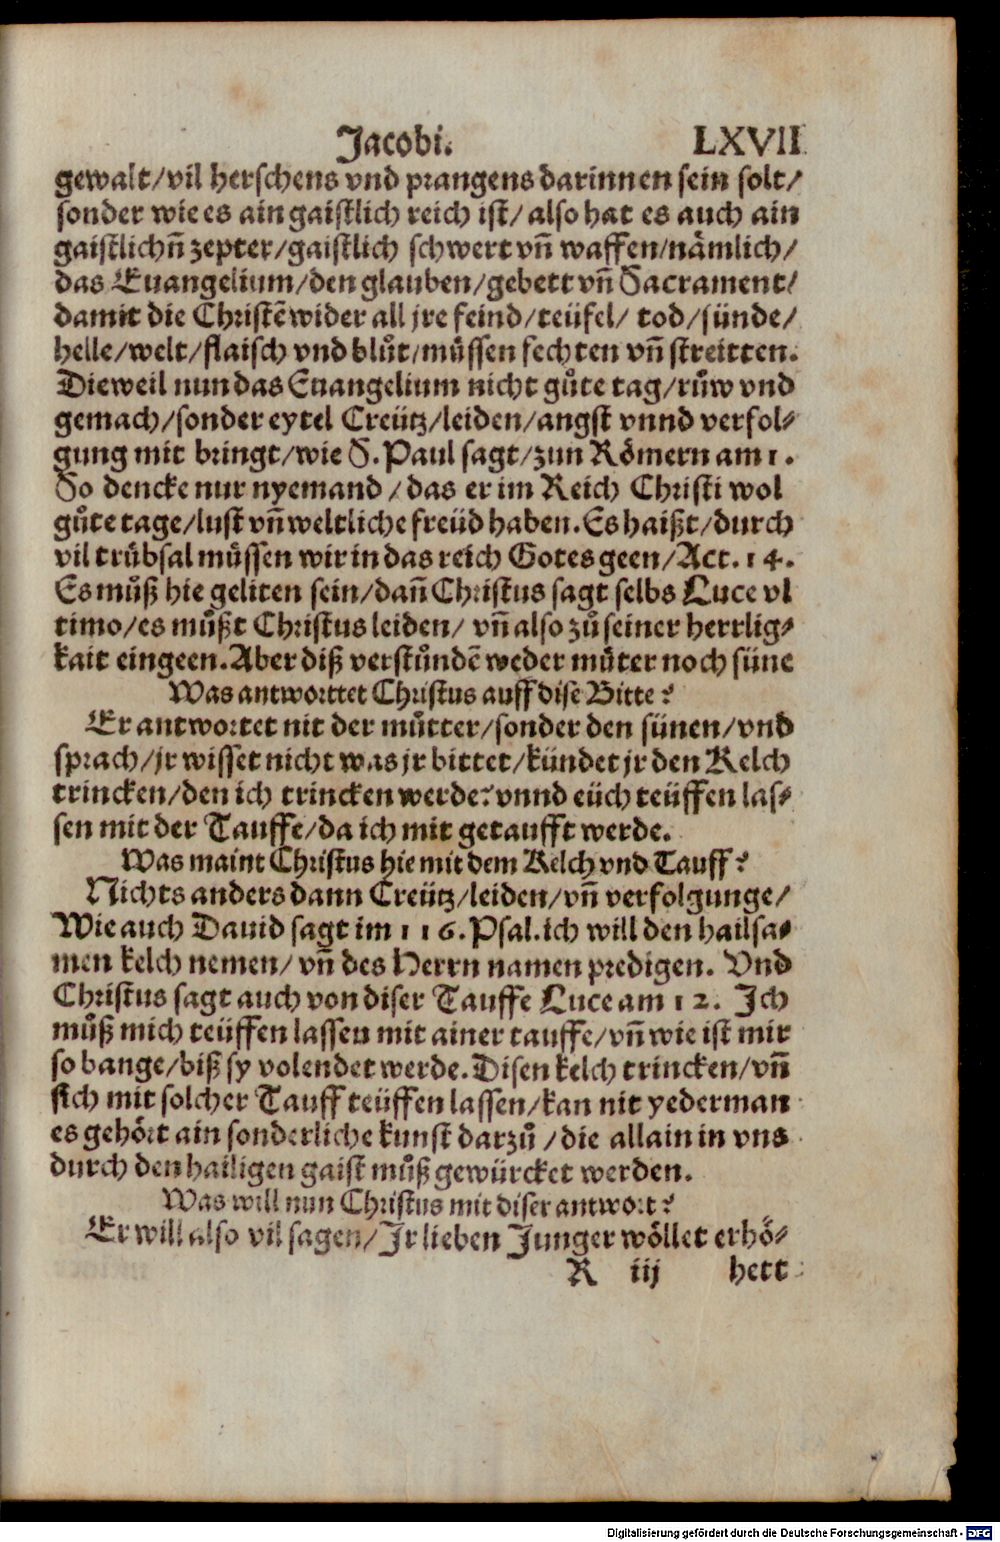 Jacobi. LXVII
gewalt/vil herschens vnd prangens darinnen sein solt/
sonder wie es ain gaistlich reich ist/ also hat es auch ain
gaistlichñ zepter/gaistlich schwert vñ waffen/nämlich/
das Euangelium/den glauben/gebett vñ Sacrament/
damit die Christẽ wider all jre feind/teüfel/ tod/sünde/
helle/welt/flaisch vnd blůt/müssen fechten vñ streitten.
Dieweil nun das Euangelium nicht gůte tag/růw vnd
gemach/sonder eytel Creütz/leiden/angst vnnd verfol-
gung mit bringt/wie S. Paul sagt/zun Römern am 1.
So dencke nur nyemand/das er im Reich Christi wol
gůte tage/lust vñ weltliche freüd haben. Es haißt/durch
vil trübsal müssen wir in das reich Gotes geen/Act. 14.
Es můß hie geliten sein/dañ Christus sagt selbs Luce vl
timo/es můßt Christus leiden/ vñ also zů seiner herrlig-
kait eingeen. Aber diß verstůndẽ weder můter noch süne
Was antworttet Christus auff dise Bitte?
Er antwortet nit der můtter/sonder den sünen/vnd
sprach/jr wisset nicht was jr bittet/kündet jr den Kelch
trincken/den ich trincken werde? vnnd eüch teüffen las-
sen mit der Tauffe/da ich mit getaufft werde.
Was maint Christus hie mit dem Kelch vnd Tauff?
Nichts anders dann Creütz/leiden/vñ verfolgunge/
Wie auch Dauid sagt im 116. Psal. ich will den hailsa-
men kelch nemen/ vñ des Herrn namen predigen. Vnd
Christus sagt auch von diser Tauffe Luce am 12. Ich
můß mich teüffen lassen mit ainer tauffe/vñ wie ist mir
so bange/biß sy volendet werde. Disen kelch trincken/vñ
sich mit solcher Tauff teüffen lassen/kan nit yederman
es gehört ain sonderliche kunst darzů/die allain in vns
durch den hailigen gaist můß gewürcket werden.
Was will nun Christus mit diser antwort?
Er will also vil sagen/Jr lieben Junger wöllet erhö-
R iij hett
Digitalisierung gefördert durch die Deutsche Forschungsgemeinschaft - DFG